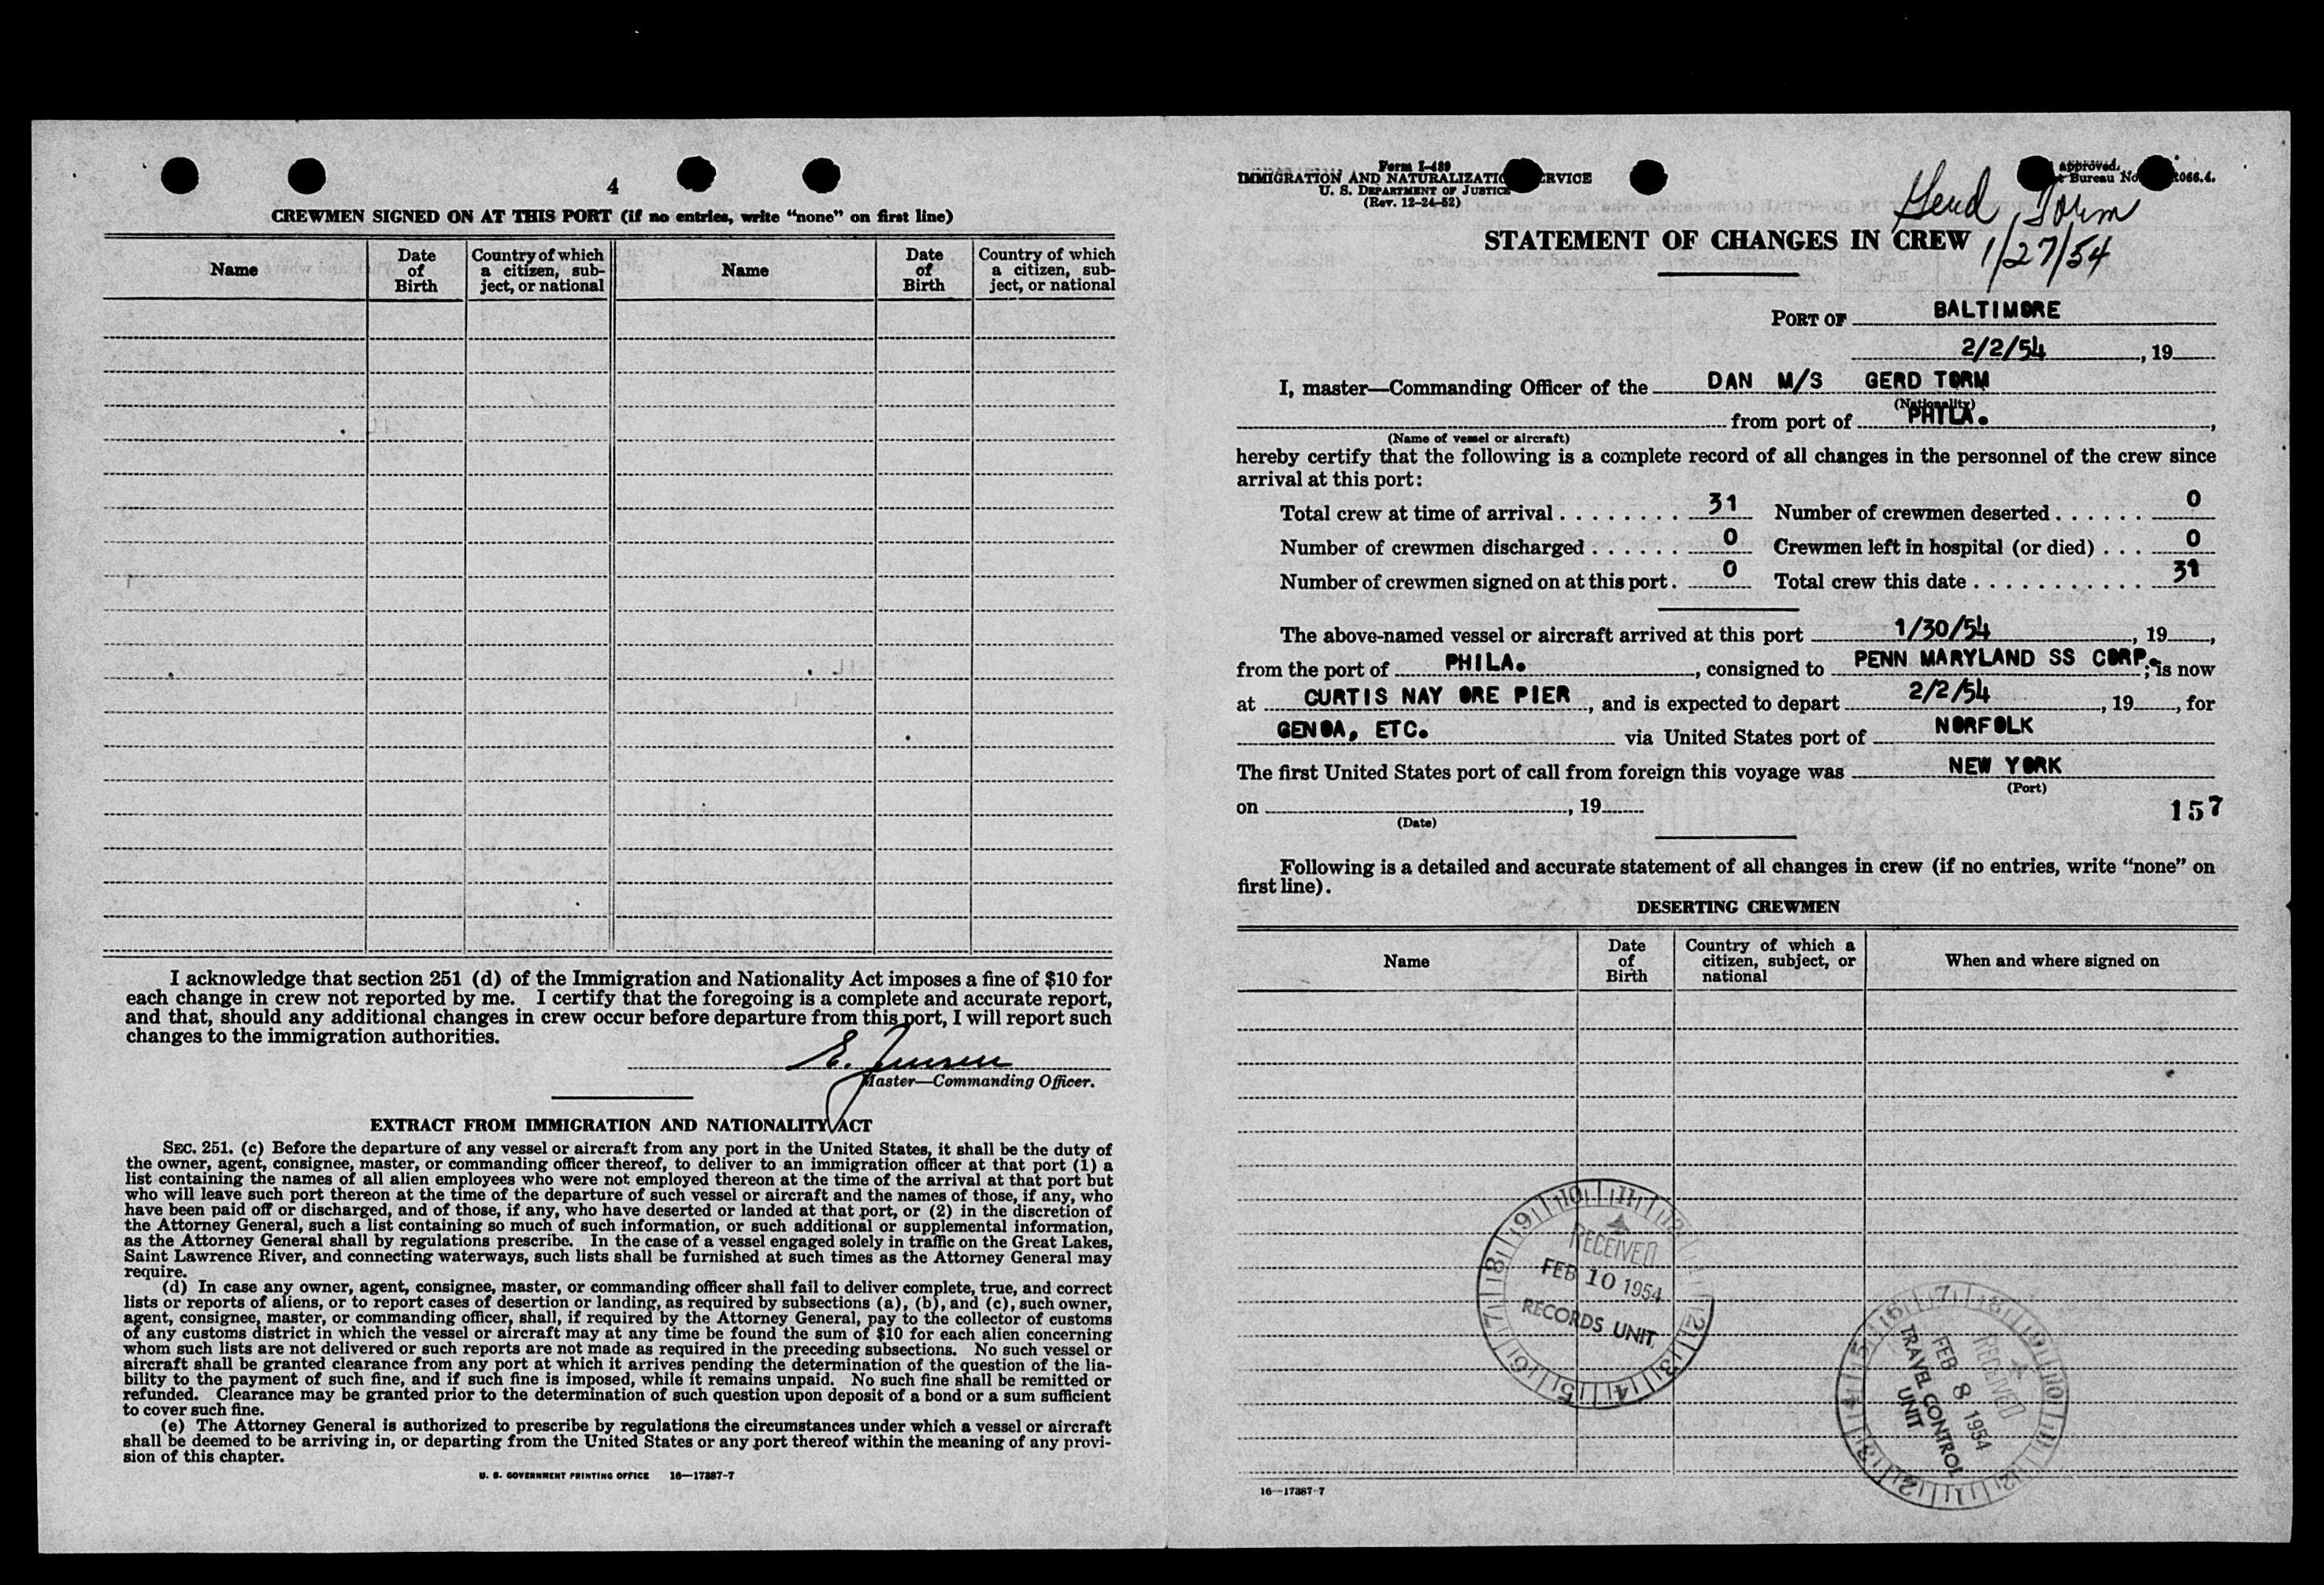 4
CREWMEN SIGNED ON AT THIS PORT (if no entries, write “none” on first line)
Name
Date of Birth
Country of which a citizen, sub-ject, or national
Name
Date of Birth
Country of which a citizen, sub-ject, or national
I acknowledge that section 251 (d) of the Immigration and Nationality Act imposes a fine of $10 for
each change in crew not reported by me. I certify that the foregoing is a complete and accurate report,
and that, should any additional changes in crew occur before departure from this port, I will report such
changes to the immigration authorities.
E. Jensen
Master—Commanding Officer.
EXTRACT FROM IMMIGRATION AND NATIONALITY ACT
SEC. 251. (c) Before the departure of any vessel or aircraft from any port in the United States, it shall be the duty of
the owner, agent, consignee, master, or commanding officer thereof, to deliver to an immigration officer at that port (1) a
list containing the names of all alien employees who were not employed thereon at the time of the arrival at that port but
who will leave such port thereon at the time of the departure of such vessel or aircraft and the names of those, if any, who
have been paid off or discharged, and of those, if any, who have deserted or landed at that port, or (2) in the discretion of
the Attorney General, such a list containing so much of such information, or such additional or supplemental information,
as the Attorney General shall by regulations prescribe. In the case of a vessel engaged solely in traffic on the Great Lakes,
Saint Lawrence River, and connecting waterways, such lists shall be furnished at such times as the Attorney General may
require.
(d) In case any owner, agent, consignee, master, or commanding officer shall fail to deliver complete, true, and correct
lists or reports of aliens, or to report cases of desertion or landing, as required by subsections (a), (b), and (c), such owner,
agent, consignee, master, or commanding officer, shall, if required by the Attorney General, pay to the collector of customs
of any customs district in which the vessel or aircraft may at any time be found the sum of $10 for each alien concerning
whom such lists are not delivered or such reports are not made as required in the preceding subsections. No such vessel or
aircraft shall be granted clearance from any port at which it arrives pending the determination of the question of the lia-
bility to the payment of such fine, and if such fine is imposed, while it remains unpaid. No such fine shall be remitted or
refunded. Clearance may be granted prior to the determination of such question upon deposit of a bond or a sum sufficient
to cover such fine.
(e) The Attorney General is authorized to prescribe by regulations the circumstances under which a vessel or aircraft
shall be deemed to be arriving in, or departing from the United States or any port thereof within the meaning of any provi-
sion of this chapter.
U. S. GOVERNMENT PRINTING OFFICE 16—17387-7
Form I-489
IMMIGRATION AND NATURALIZATIO RVICE
U. S. DEPARTMENT OF JUSTICE
(Rev. 12-24-52)
approved.
Bureau No 066.4.
Gerd Torm
1/27/54
STATEMENT OF CHANGES IN CREW
PORT OF BALTIMORE
2/2/54 , 19
I, master—Commanding Officer of the DAN M/S GERD TORM
(Nationality)
from port of PHILA. ,
(Name of vessel or aircraft)
hereby certify that the following is a complete record of all changes in the personnel of the crew since
arrival at this port:
Total crew at time of arrival 31 Number of crewmen deserted 0
Number of crewmen discharged 0 Crewmen left in hospital (or died) 0
Number of crewmen signed on at this port. 0 Total crew this date 31
The above-named vessel or aircraft arrived at this port 1/30/54 , 19 ,
from the port of PHILA. , consigned to PENN MARYLAND SS CORP. ; is now
at CURTIS NAY ORE PIER , and is expected to depart 2/2/54 , 19 , for
GENOA, ETC. via United States port of NORFOLK
The first United States port of call from foreign this voyage was NEW YORK
(Port)
on , 19
(Date)
157
Following is a detailed and accurate statement of all changes in crew (if no entries, write “none” on
first line).
DESERTING CREWMEN
Name
Date of Birth
Country of which a citizen, subject, or national
When and where signed on
RECEIVED
FEB 10 1954
RECORDS UNIT
RECEIVED
FEB 8 1954
TRAVEL CONTROL
UNIT
16—17387-7